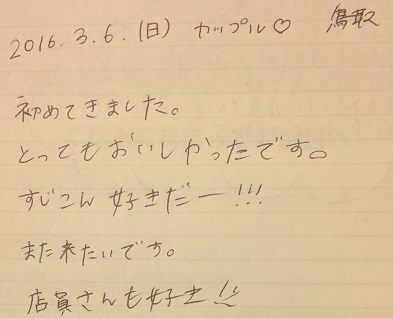 2016.3.6.(日) カップル♡ 鳥取
初めてきました。
とってもおいしかったです。
すじこん好きだー!!!
また来たいです。
店員さんも好き!!